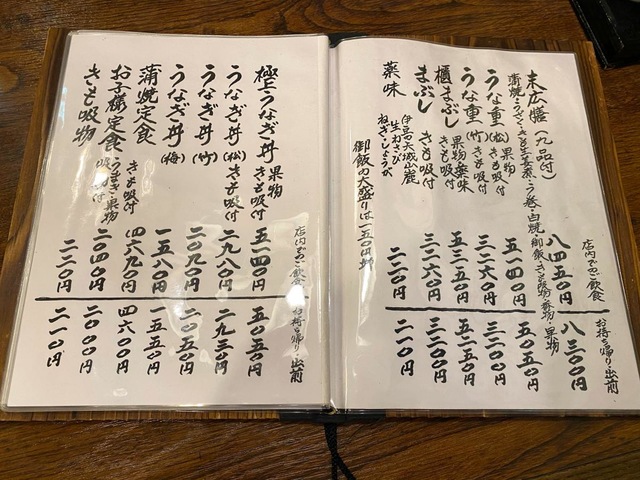 店内でのご飲食
お持ち帰り・出前
末広膳(九品付)
八四五〇円
八三〇〇円
蒲焼・うざく・きも生姜煮・う巻・白焼・御飯・きも吸物・香物・果物
うな重(松)
果物
きも吸付
五一四〇円
五〇五〇円
うな重(竹)
きも吸付
三二六〇円
三二〇〇円
櫃まぶし
果物薬味
きも吸付
五三五〇円
五二五〇円
まぶし
きも吸付
三二六〇円
三二〇〇円
薬味
伊豆天城山麓
生わさび
ねぎ・しょうが
二二〇円
二一〇円
御飯の大盛りは一五〇円増
店内でのご飲食
お持ち帰り・出前
極上うなぎ丼
果物
きも吸付
五一四〇円
五〇五〇円
うなぎ丼(松)
きも吸付
二九八〇円
二九三〇円
うなぎ丼(竹)
二〇九〇円
二〇五〇円
うなぎ丼(梅)
一五八〇円
一五五〇円
蒲焼定食
きも吸付
四六九〇円
四六〇〇円
お子様定食
うまき・果物
吸物付
二〇四〇円
二〇〇〇円
きも吸物
二二〇円
二一〇円